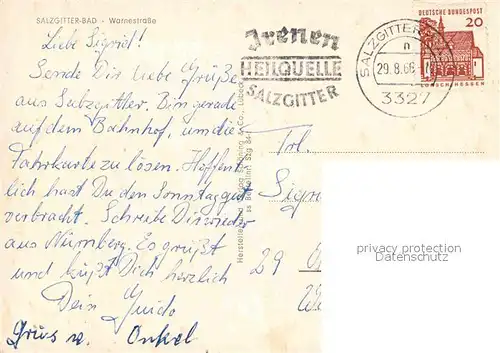 SALZGITTER-BAD - Warnestraße
Liebe Sigrid!
Sende Dir liebe Grüße
aus Salzgitter. Bin gerade
auf dem Bahnhof, um die
Fahrkarte zu lösen. Hoffent
lich hast Du den Sonntag gut
verbracht. Schreibe Dir wieder
aus Nürnberg. Es grüßt
und küßt Dich herzlich
Dein Guido
Grüs Onkel
Irenen
HEILQUELLE
SALZGITTER
SALZGITTER
n
29.8.66
3327
DEUTSCHE BUNDESPOST
20
LORSCH/HESSEN
Frl.
Sigr
29
privacy protection
Datenschutz